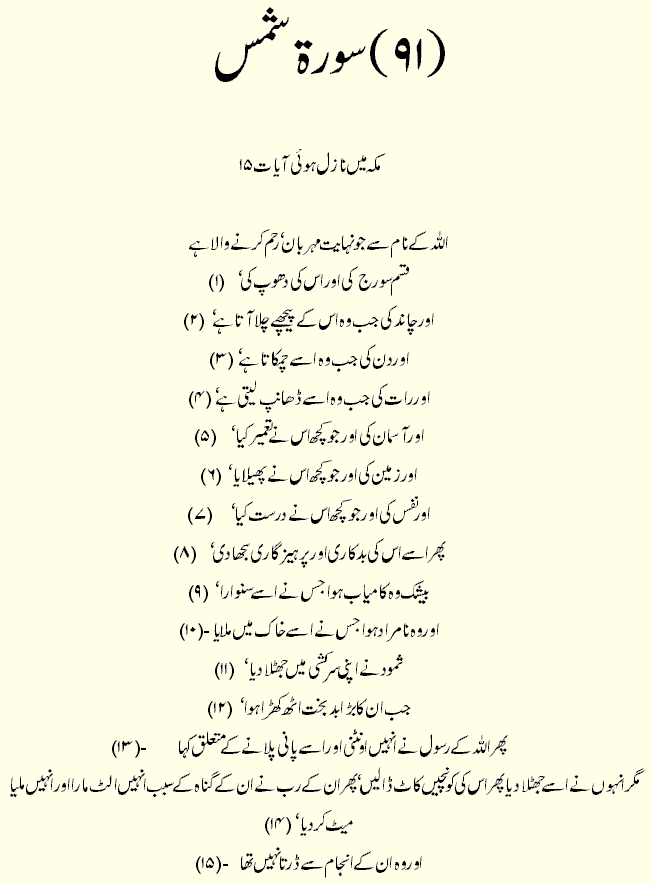 (۹۱) سورۃ شمس
مکہ میں نازل ہوئی آیات ۱۵
اللہ کے نام سے جو نہایت مہربان‘ رحم کرنے والا ہے
قسم سورج کی اور اس کی دھوپ کی‘ (۱)
اور چاند کی جب وہ اس کے پیچھے چلا آتا ہے‘ (۲)
اور دن کی جب وہ اسے چمکاتا ہے‘ (۳)
اور رات کی جب وہ اسے ڈھانپ لیتی ہے‘ (۴)
اور آسمان کی اور جو کچھ اس نے تعمیر کیا‘ (۵)
اور زمین کی اور جو کچھ اس نے پھیلایا‘ (۶)
اور نفس کی اور جو کچھ اس نے درست کیا‘ (۷)
پھر اسے اس کی بدکاری اور پرہیز گاری سجھا دی‘ (۸)
بیشک وہ کامیاب ہوا جس نے اسے سنوارا‘ (۹)
اور وہ نامراد ہوا جس نے اسے خاک میں ملایا -(۱۰)
ثمود نے اپنی سرکشی میں جھٹلا دیا‘ (۱۱)
جب ان کا بڑا بد بخت اٹھ کھڑا ہوا‘ (۱۲)
پھر اللہ کے رسول نے انہیں اونٹنی اور اسے پانی پلانے کے متعلق کہا -(۱۳)
مگر انہوں نے اسے جھٹلا دیا پھر اس کی کونچیں کاٹ ڈالیں‘ پھر ان کے رب نے ان کے گناہ کے سبب انہیں الٹ مارا اور انہیں ملیا
میٹ کر دیا‘ (۱۴)
اور وہ ان کے انجام سے ڈرتا نہیں تھا -(۱۵)